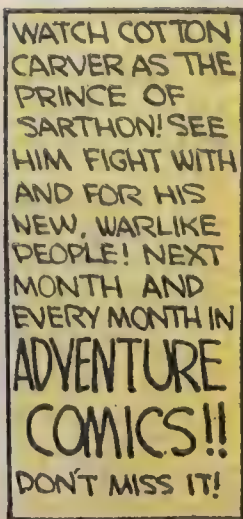 WATCH COTTON
CARVER AS THE
PRINCE OF
SARTHON! SEE
HIM FIGHT WITH
AND FOR HIS
NEW, WARLIKE
PEOPLE! NEXT
MONTH AND
EVERY MONTH IN
ADVENTURE
COMICS!!
DON'T MISS IT!